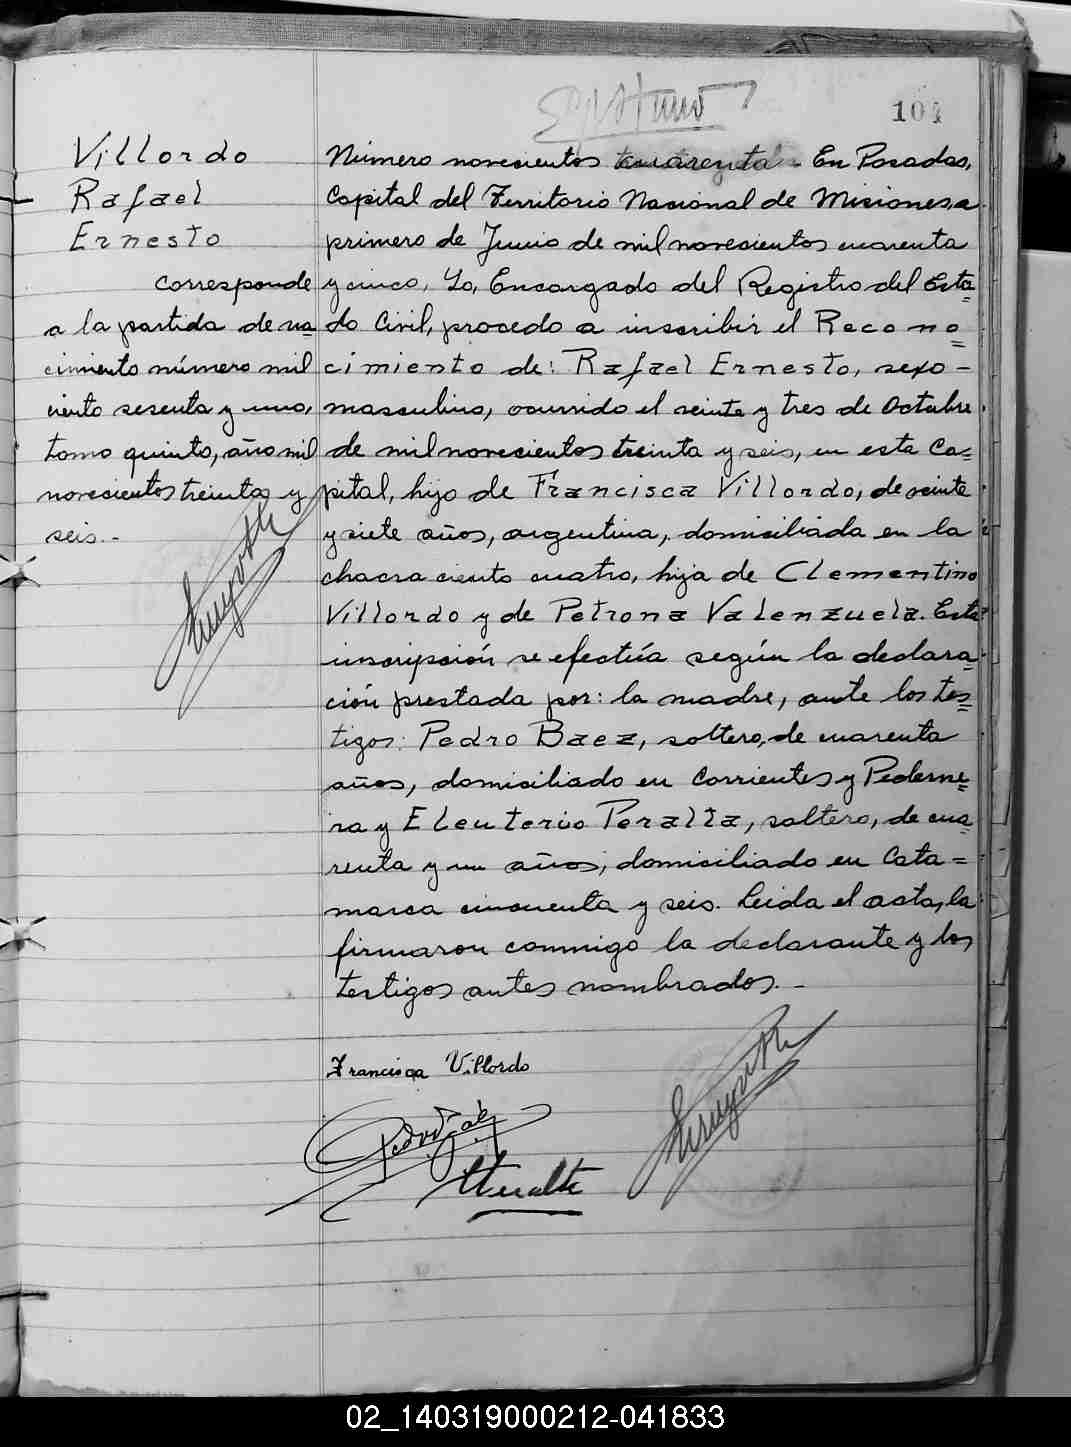 104
Villordo
Rafael
Ernesto
corresponde
a la partida de na=
cimiento número mil
ciento sesenta y uno,
tomo quinto, año mil
novecientos treinta y
seis.-
Número novecientos cuarenta - En Posadas,
Capital del Territorio Nacional de Misiones, a
primero de Junio de mil novecientos cuarenta
y cinco, Yo, Encargado del Registro del Esta=
do Civil, procedo a inscribir el Recono=
cimiento de: Rafael Ernesto, sexo -
masculino, ocurrido el veinte y tres de Octubre
de mil novecientos treinta y seis, en esta Ca=
pital, hijo de Francisca Villordo, de veinte
y siete años, argentina, domiciliada en la
chacra ciento cuatro, hija de Clementino
Villordo y de Petrona Valenzuela. Esta
inscripción se efectúa según la declara=
ción prestada por: la madre, ante los tes=
tigos: Pedro Baez, soltero, de cuarenta
años, domiciliado en Corrientes y Pederne=
ra y Eleuterio Peralta, soltero, de cua=
renta y un años, domiciliado en Cata=
marca cincuenta y seis. Leida el acta, la
firmaron conmigo la declarante y los
testigos antes nombrados. -
Francisca Villordo
02_140319000212-041833